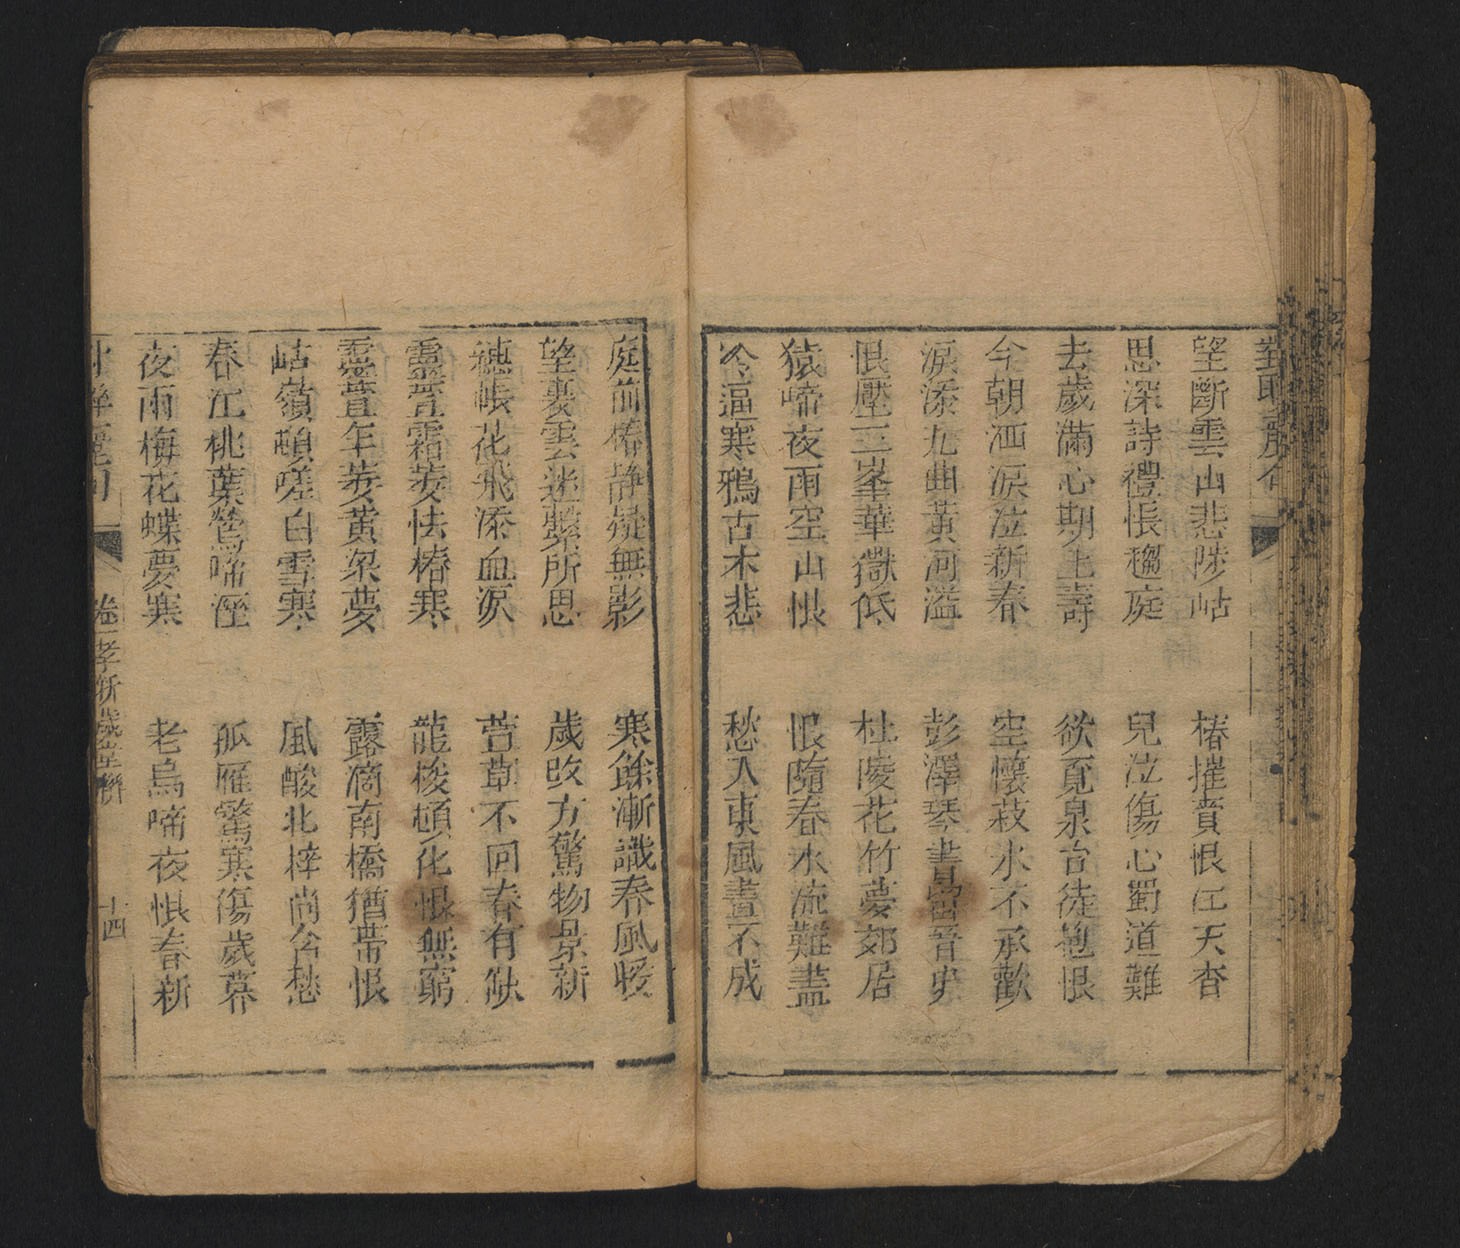 望斷雲山悲陟岵　椿摧賁恨江天杳
思深詩禮悵趨庭　兒泣傷心蜀道難
去歲滿心期上壽　欲覓泉台徒抱恨
今朝洒淚泣新春　空懷菽水不承歡
淚添九曲黃河溢　彭澤琴書留晉史
恨壓三峯華嶽低　杜陵花竹夢郊居
猿啼夜雨空山恨　恨隨春水流難盡
冷逼寒鴉古木悲　愁入東風畫不成
庭前椿靜疑無影　寒餘漸識春風暖
望裏雲迷繫所思　歲改方驚物景新
穗帳花飛添血淚　萱草不回春有缺
靈萱霜萎怯椿寒　龍梭頓化恨無窮
靈萱年萎黃粱夢　露滴南橋猶帶恨
岵嶺頓嗟白雪寒　風酸北梓尚含愁
春江桃葉鶯啼溼　孤雁驚寒傷歲暮
夜雨梅花蝶夢寒　老烏啼夜恨春新
卷一孝新歲堂聯　十四